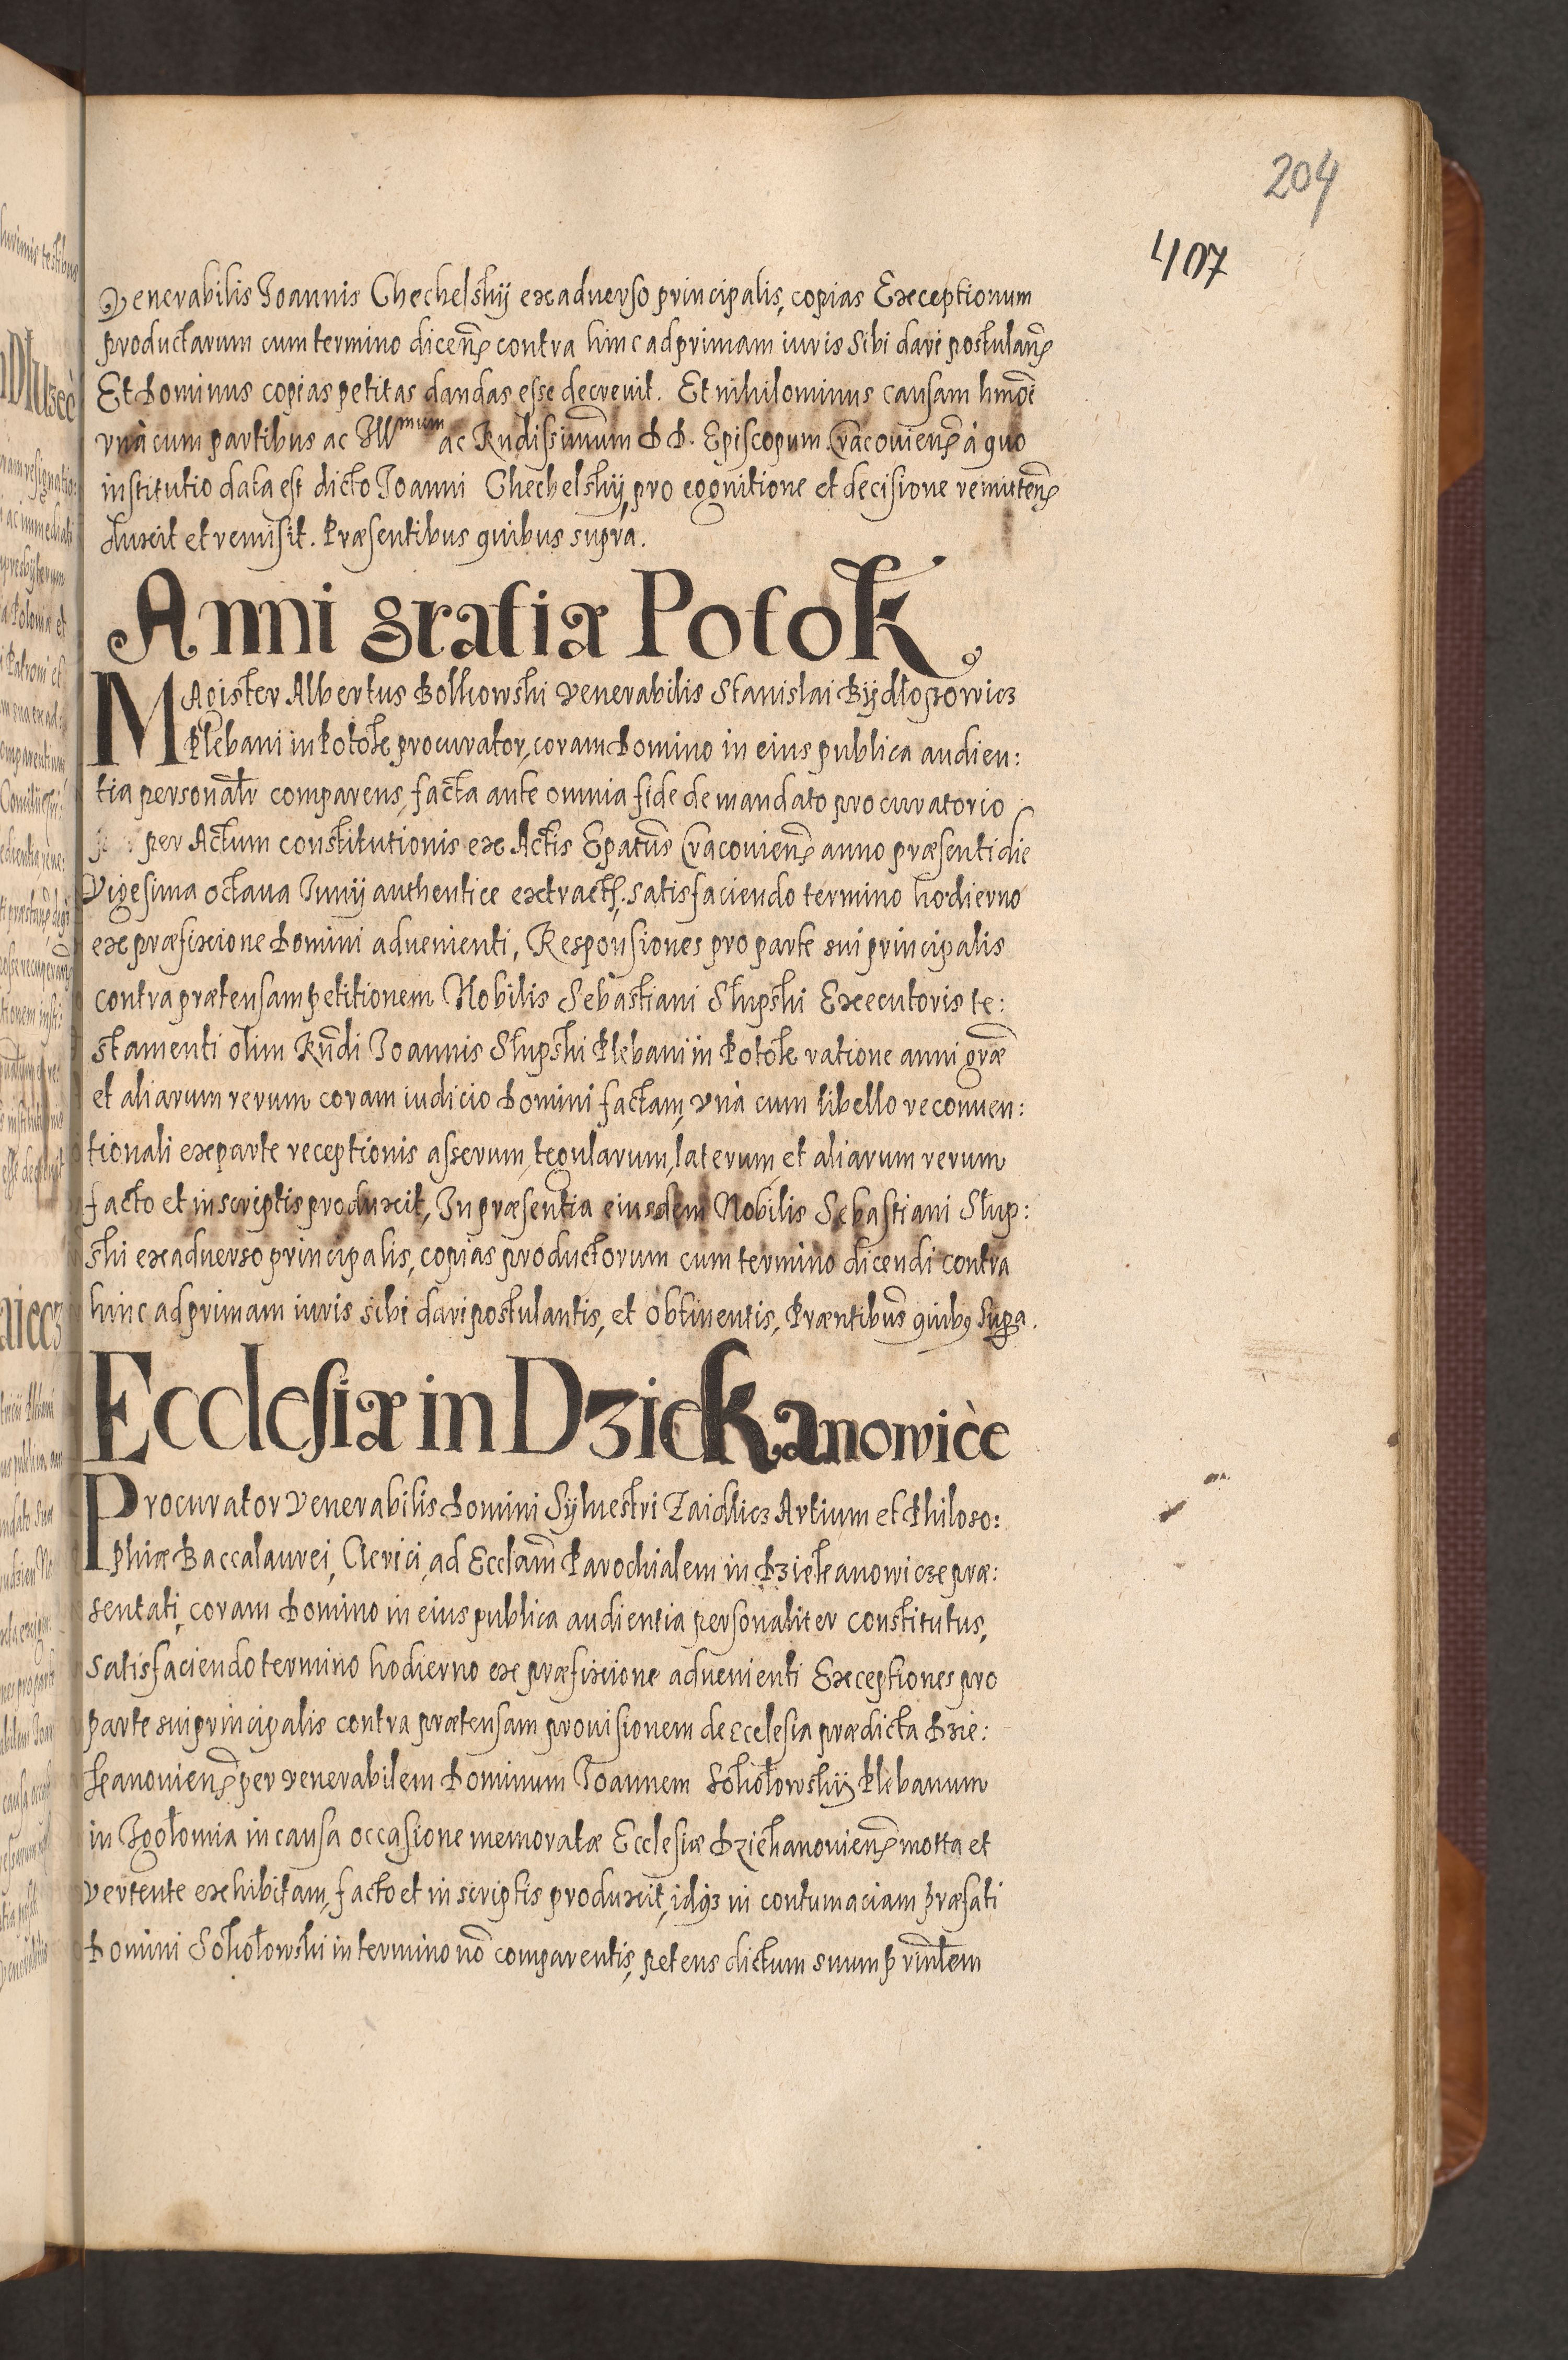 204
407
Venerabilis Joannis Chechelskij ex aduerso principalis, copias Exceptionum
productarum cum termino dicen̄ contra hinc ad primam iuris sibi dari postulan̄
Et Dominus copias petitas dandas esse decreuit. Et nihilominus causam hmōi
vnà cum partibus ac Illmum ac Rndissimum D D. Episcopum Cracouien̄ à quo
institutio data est dicto Joanni Chechelskij, pro cognitione et decisione remitten̄
duxit et remisit. Præsentibus quibus supra.
Anni gratiæ Potok
MAgister Albertus Bolkowski venerabilis Stanislai Rydłoszowicz
Plebani in Potok procurator, coram Domino in eius publica audien:
tia personalr comparens, facta ante omnia fide de mandato procuratorio
per Actum constitutionis ex Actis Epatus Cracouien̄ anno præsenti die
Vigesima octaua Junij authentice extract. satisfaciendo termino hodierno
ex præfixione Domini aduenienti, Responsiones pro parte sui principalis
contra prætensam petitionem Nobilis Sebastiani Słupski Executoris te:
stamenti olim Rndi Joannis Słupski Plebani in Potok ratione anni græ
et aliarum rerum coram iudicio Domini factam, vnà cum libello reconuen:
tionali ex parte receptionis asserum, tegularum, laterum, et aliarum rerum
facto et in scriptis produxit, In præsentia eiusdem Nobilis Sebastiani Słup:
ski ex aduerso principalis, copias productorum cum termino dicendi contra
hinc ad primam iuris sibi dari postulantis, et obtinentis, Præntibus quibꝫ supra.
Ecclesiæ in Dziekanowice
Procurator venerabilis Domini Syluestri Zaidlicz Artium et Philoso:
phiæ Baccalaurei, Clerici, ad Ecclam Parochialem in Dziekanowicze præ:
sentati, coram Domino in eius publica audientia personaliter constitutus,
Satisfaciendo termino hodierno ex præfixione aduenienti Exceptiones pro
parte sui principalis contra prætensam prouisionem de ecclesia prædicta Dzie:
kanouien̄ per venerabilem Dominum Joannem Sokołowskij Plebanum
in Igołomia in causa occasione memoratæ Ecclesiæ Dziekanouien̄ motta et
vertente exhibitam, facto et in scriptis produxit, idqꝫ in contumaciam præfati
Domini Sokołowski in termino nō comparentis, petens dictum suum prinlem